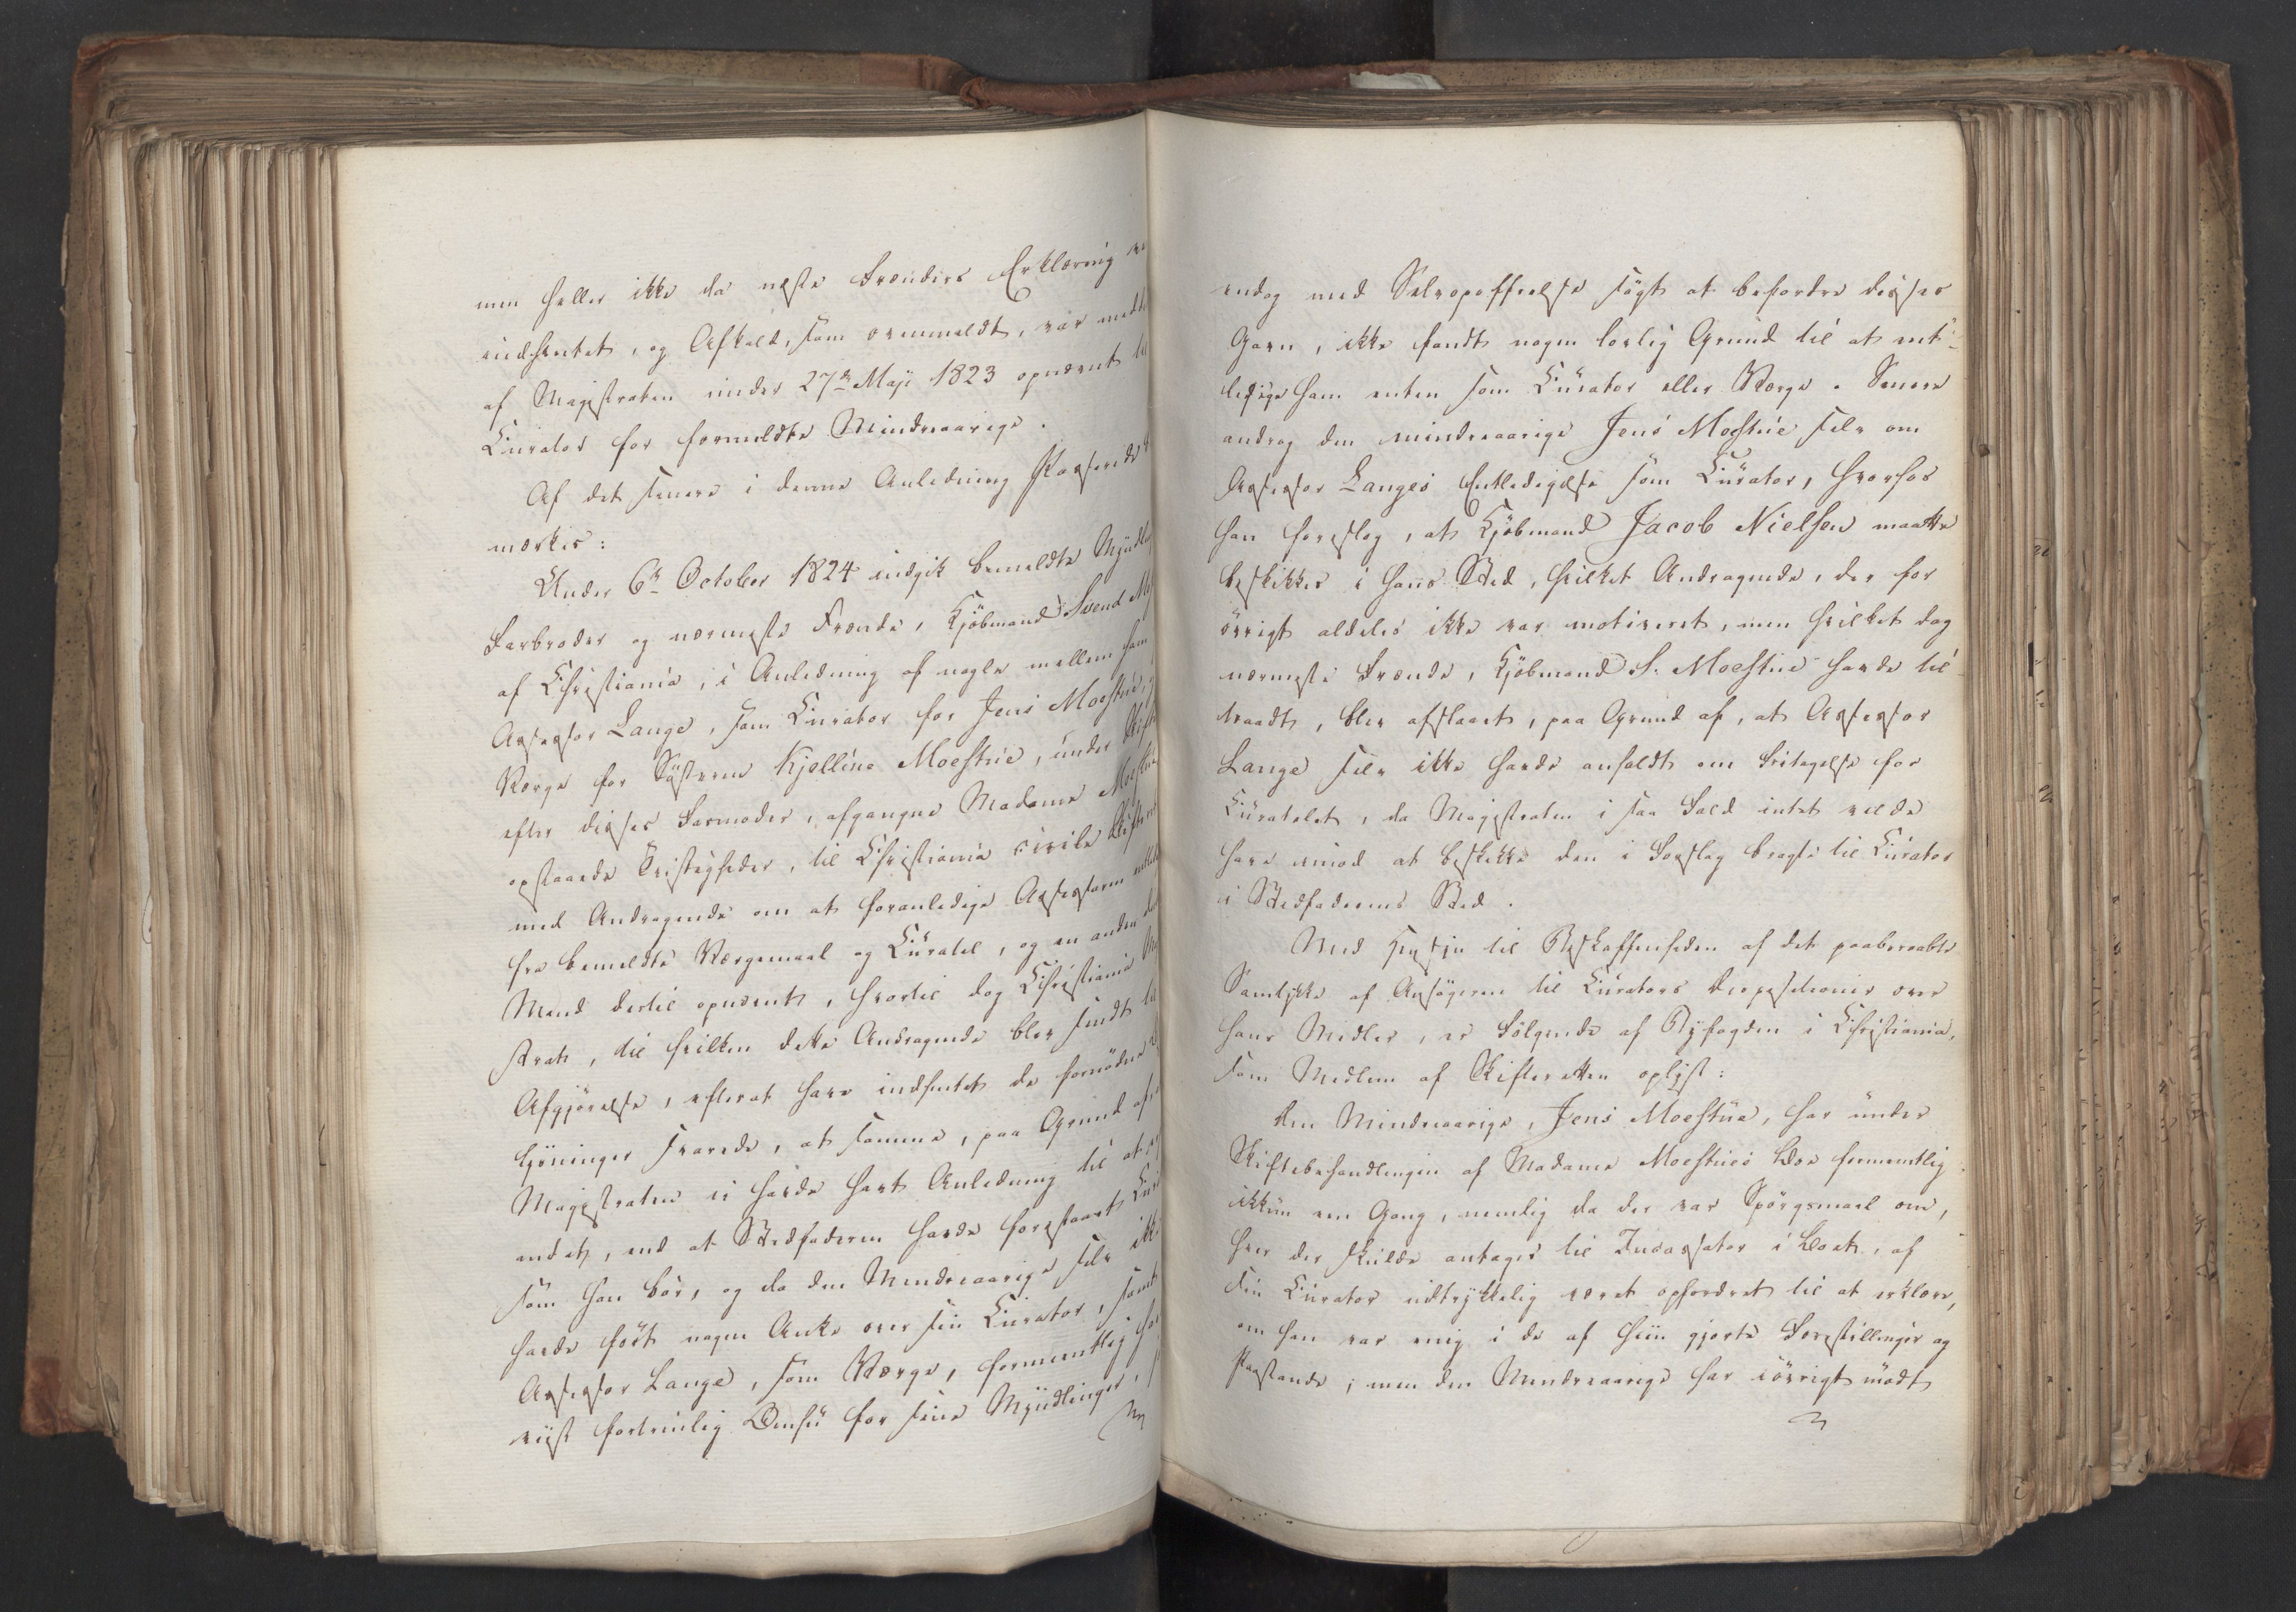 men heller ikke da næste Frænders Erklæring
indhentet, og Assessor, som ovenmeldt, var
af Magistraten under 27de Maji 1823 opnævnt
Curator for formeldte Mindreaarige.
Af det senere i denne Anledning Passerede
mærkes:
Under 6te October 1824 indgik bemeldte
Farbroder og nærmeste Frænde, Kjøbmand Svend
af Christiania, i Anledning af nogle mellem ham
Assessor Lange, som Curator for Jens Moestue,
Værge for Søsteren Kjelline Moestue, under
efter disses Farmoder, afgangne Madame Moestue
opstaaede Tvistigheder, til Christiania civile
med Andragende om at foranledige Assessoren
fra bemeldte Værgemaal og Curatel, og en anden
Mand dertil opnævnt, hvortil dog Christiania
strat, til hvilken dette Andragende blev sendt til
Afgjørelse, efterat have indhentet de fornødne
lysninger svarede, at samme, paa Grund af,
Magistraten ei havde havt Anledning til at
andet, end at Stedfaderen havde forestaaet
som han bør, og da den Mindreaarige selv ikke
havde ført nogen Anke over sin Curator, samt
Assessor Lange, som Værge, formeentlig
viist fortrinlig Omhu for sine Myndlinger,
endog med Selvopoffrelse søgt at befordre disses
Gavn, ikke fandt nogen lovlig Grund til at ent-
ledige ham enten som Curator eller Værge. Senere
androg den mindreaarige Jens Moestue selv om
Assessor Langes Entledigelse som Curator, hvorfor
han foreslog, at Kjøbmand Jacob Nielsen maatte
beskikkes i hans Sted, hvilket Andragende, der for
øvrigt aldeles ikke var motiveret, men hvilket dog
nærmeste Frænde, Kjøbmand S. Moestue havde til-
traadt, blev afslaaet, paa Grund af, at Assessor
Lange selv ikke havde anholdt om Fritagelse for
Curatelet, da Magistraten i saa Fald intet vilde
have imod at beskikke den i Forslag bragte til Curator
i Stedfaderens Sted.
Med Hensyn til Beskaffenheden af det paaberaabte
Samtykke af Ansøgeren til Curators Dispositioner over
hans Midler, er Følgende af Byfogden i Christiania,
som Medlem af Skifteretten oplyst:
Den Mindreaarige, Jens Moestue, har under
Skiftebehandlingen af Madame Moestues Boe formeentlig
ikkun een Gang, nemlig da der var Spørgsmaal om,
hvo der skulde antages til Incassator i Boet, af
sin Curator udtrykkelig været opfordret til at erklære,
om han var enig i de af hiin gjorte Forestillinger og
Paastande; men den Mindreaarige har iøvrigt mødt